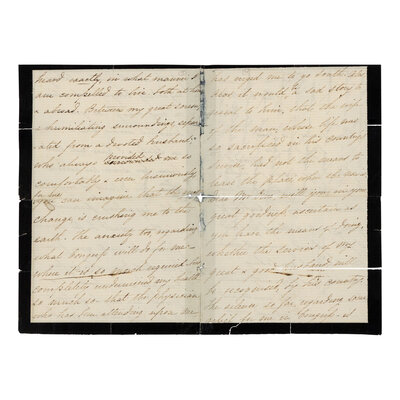 heard exactly, in what manner I
am compelled to live both at home
& abroad. Between my great sorrow,
& humiliating surroundings, separ-
ated from a devoted husband,
who always
provided
me so
comfortably & even luxuriously
for me
you can imagine that the
change is crushing me to the
earth. the anxiety too, regarding
what Congress will do for me
where it is so much required
completely undermines my health
so much so that the physician
who has been attending upon me
has urged me to go South
it would a sad story
great to him, that the wife
of the man, whose life was
so sacrificed in his country's
service, had not the means to
leave the place when she
with you in your
great goodness ascertain as
you have the means of doing,
whether the services of my
great & good husband will
be responded, by his country.
the silence so far regarding some
relief for me in Congress, is